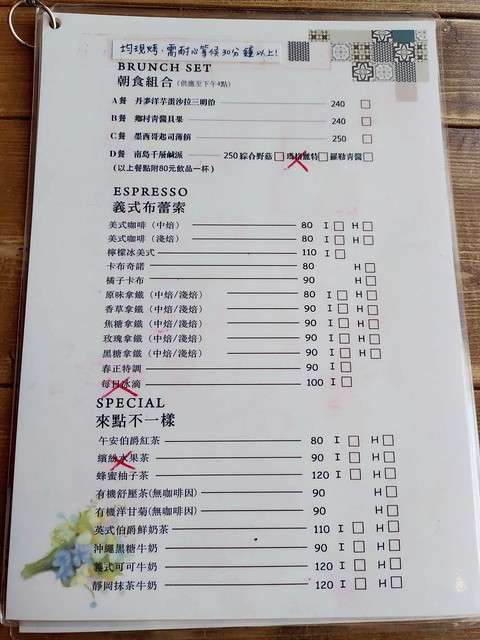 均現烤，需耐心等候30分鐘以上!
BRUNCH SET
朝食組合 (供應至下午4點)
A餐 丹麥洋芋蛋沙拉三明治 240 □
B餐 鄉村青醬貝果 240 □
C餐 墨西哥起司薄餅 250 □
D餐 南島千層鹹派 250 綜合野菇□瑪格麗特□羅勒青醬□
(以上餐點附80元飲品一杯)
ESPRESSO
義式布蕾索
美式咖啡 (中焙) 80 I □ H □
美式咖啡 (淺焙) 80 I □ H □
檸檬冰美式 110 I □
卡布奇諾 80 H □
橘子卡布 90 H □
原味拿鐵 (中焙/淺焙) 80 I □ H □
香草拿鐵 (中焙/淺焙) 90 I □ H □
焦糖拿鐵 (中焙/淺焙) 90 I □ H □
玫瑰拿鐵 (中焙/淺焙) 90 I □ H □
黑糖拿鐵 (中焙/淺焙) 90 I □ H □
春正特調 90 I □
每日冰滴 100 I □
SPECIAL
來點不一樣
午安伯爵紅茶 80 I □ H □
繽紛水果茶 90 I □ H □
蜂蜜柚子茶 120 I □ H □
有機舒壓茶(無咖啡因) 90 H □
有機洋甘菊(無咖啡因) 90 H □
英式伯爵鮮奶茶 110 I □ H □
沖繩黑糖牛奶 90 I □ H □
義式可可牛奶 120 I □ H □
靜岡抹茶牛奶 120 I □ H □